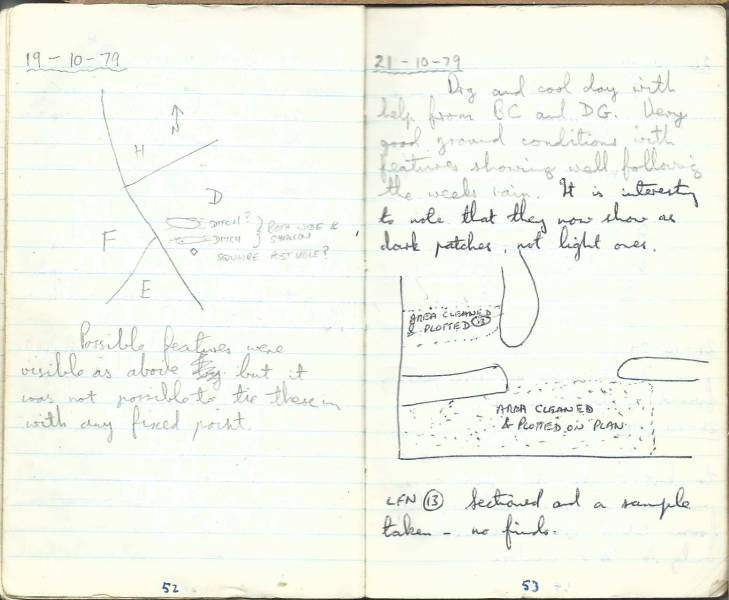 19-10-79
N
H
D
DITCH? } BOTH WIDE &
DITCH } SHALLOW
SQUARE POST HOLE?
F
E
Possible features were
visible as above but it
was not possible to tie these in
with any fixed point.
52
21-10-79
Dry and cool day with
help from BC and DG. Very
good ground conditions with
features showing well following
the weeks rain. It is interesting
to note that they now show as
dark patches, not light ones.
AREA CLEANED
& PLOTTED 13
AREA CLEANED
& PLOTTED ON PLAN
LFN 13 Sectioned and a sample
taken - no finds.
53